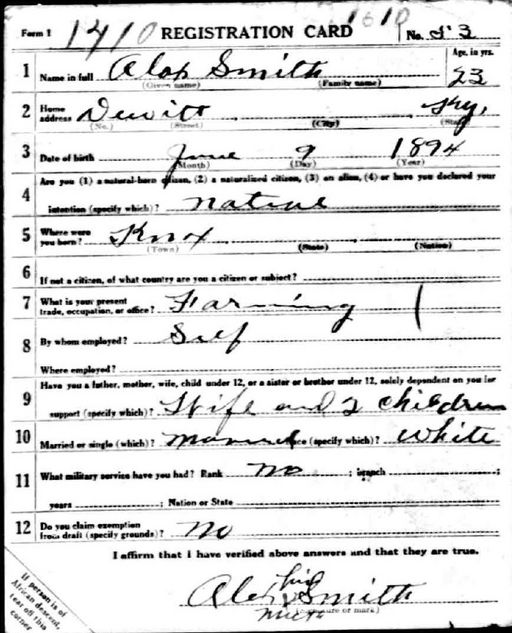 Form 1 1410 REGISTRATION CARD 1610 No. 93
Age, in yrs.
1 Name in full Alax Smith 23
(Given name) (Family name)
2 Home address Dewitt Ky.
(No.) (Street) (City) (State)
3 Date of birth June 9 1894
(Month) (Day) (Year)
4 Are you (1) a natural-born citizen, (2) a naturalized citizen, (3) an alien, (4) or have you declared your
intention (specify which)? native
5 Where were you born? Knox
(Town) (State) (Nation)
6 If not a citizen, of what country are you a citizen or subject?
7 What is your present trade, occupation, or office? Farming
8 By whom employed? Self
Where employed?
9 Have you a father, mother, wife, child under 12, or a sister or brother under 12, solely dependent on you for
support (specify which)? Wife and 2 children
10 Married or single (which)? Married Race (specify which)? White
11 What military service have you had? Rank no ; branch ;
years ; Nation or State
12 Do you claim exemption from draft (specify grounds)? No
I affirm that I have verified above answers and that they are true.
his
Alax X Smith
(Signature or mark)
mark
If person is of
African descent,
tear off this
corner